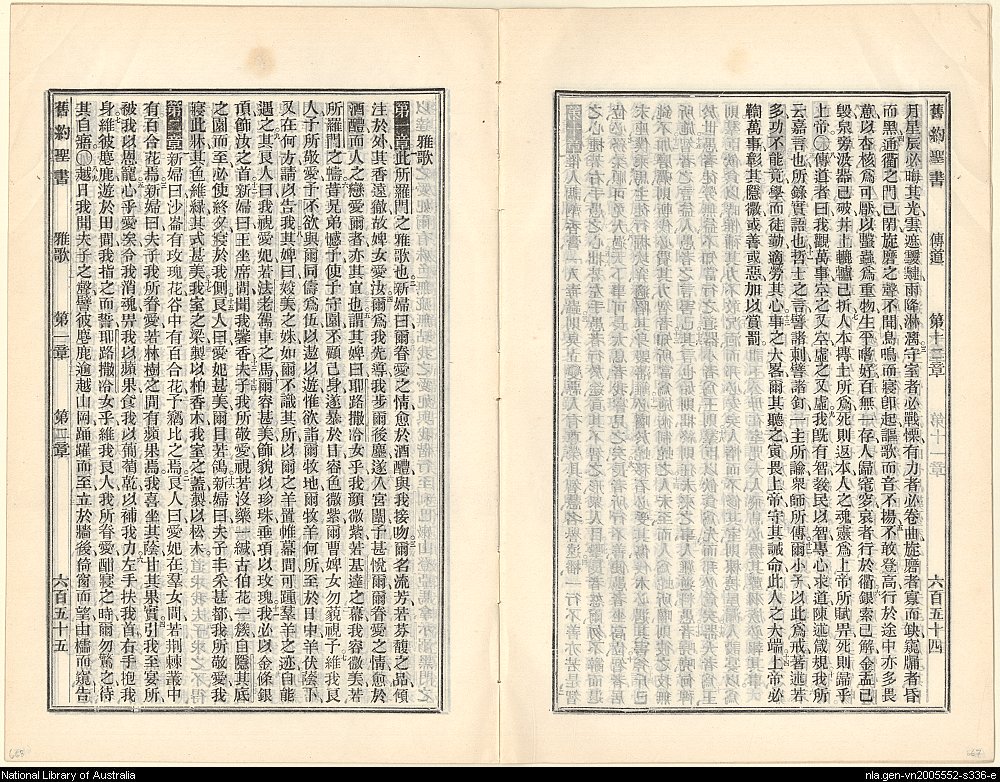 舊約聖書 傳道 第十二章 六百五十四
月星辰必晦其光雲遮靉靆雨降淋漓守室者必戰慄有力者必卷曲旋磨者寡而缺窺牖者昏
而黑通衢之門已閉旋磨之聲不聞鳥鳴而寢卽起謳歌而音不揚不敢登高行於途中亦多畏
葸以杏核爲可厭以螽爲重物生平嗜好百無一存人歸窀穸哀者行於衢銀索已解金盂已
毀泉旁汲器已破井上轆轤已折人本摶土所爲死則返本人之魂靈爲上帝所賦畀死則歸乎
上帝傳道者曰我觀萬事空之又空虛之又虛我旣有智敎民以智專心求道陳述箴規我所
云嘉言也所錄實語也哲士之言譬諸刺譬諸釘一主所諭衆師所傳爾小子以此爲戒若述若
多功不能竟學而徒勤適勞其心事之大畧爾其聽之寅畏上帝守其誡命此人之大端上帝必
鞫萬事彰其隱微或善或惡加以賞罰
雅歌
第一章此所羅門之雅歌也新婦曰爾眷愛之情愈於酒醴與我接吻爾名流芳若芬馥之品傾
注於外其香遠徹故婢女愛汝爾爲我先導我步爾後塵遂入宮闈予甚悅爾爾眷愛之情愈於
酒醴而人之戀愛爾者亦其宜也謂其婢曰耶路撒冷女乎我顏微紫若基達之幕我容微美若
所羅門之幬昔兄弟憾予使予守園不顧己身遂暴於日容色微紫爾曹婢女勿藐視予維我良
人予所敬愛予不欲與爾同儔爲伍以遨以遊惟欲詣爾牧地爾牧羊何所至於日中羊伏蔭下
又在何方請以告我其婢曰姣美之姝如爾不識其所以爾之羊置帷幕間可踵羣羊之迹自能
遇之其良人曰我視愛妃若法老駕車之馬爾容甚美飾貌以珍珠垂項以玫瑰我必以金絛銀
項飾汝之首新婦曰王坐席間聞我馨香夫子我所敬愛視若沒藥一緘古伯花一簇自隱其底
之園而至必使終夕寢於我側良人曰愛妃甚美爾目若鴿新婦曰夫子丰采甚都我所敬愛我
寢此牀其色維綠其式甚美我室之梁製以柏香木我室之蓋製以松木
第二章新婦曰沙崙有玫瑰花谷中有百合花予猶比之焉良人曰愛妃在羣女間若荊棘叢中
有百合花焉新婦曰夫子我所眷愛若林樹之間有蘋果焉我喜坐其蔭甘其果實引我至宴所
被我以恩寵心乎愛矣令我消魂畀我以蘋果食我以葡萄乾以補我力左手扶我首右手抱我
身維彼麀鹿遊於田間我指之而誓耶路撒冷女乎維我良人我所眷愛酣寢之時爾勿驚之待
其自寤越日我聞夫子之聲譬彼麀鹿逾越山岡踊躍而至立於牆後倚窗而望由櫺而窺告
舊約聖書 雅歌 第一章 第二章 六百五十五
National Library of Australia
nla.gen-vn2005552-s336-e